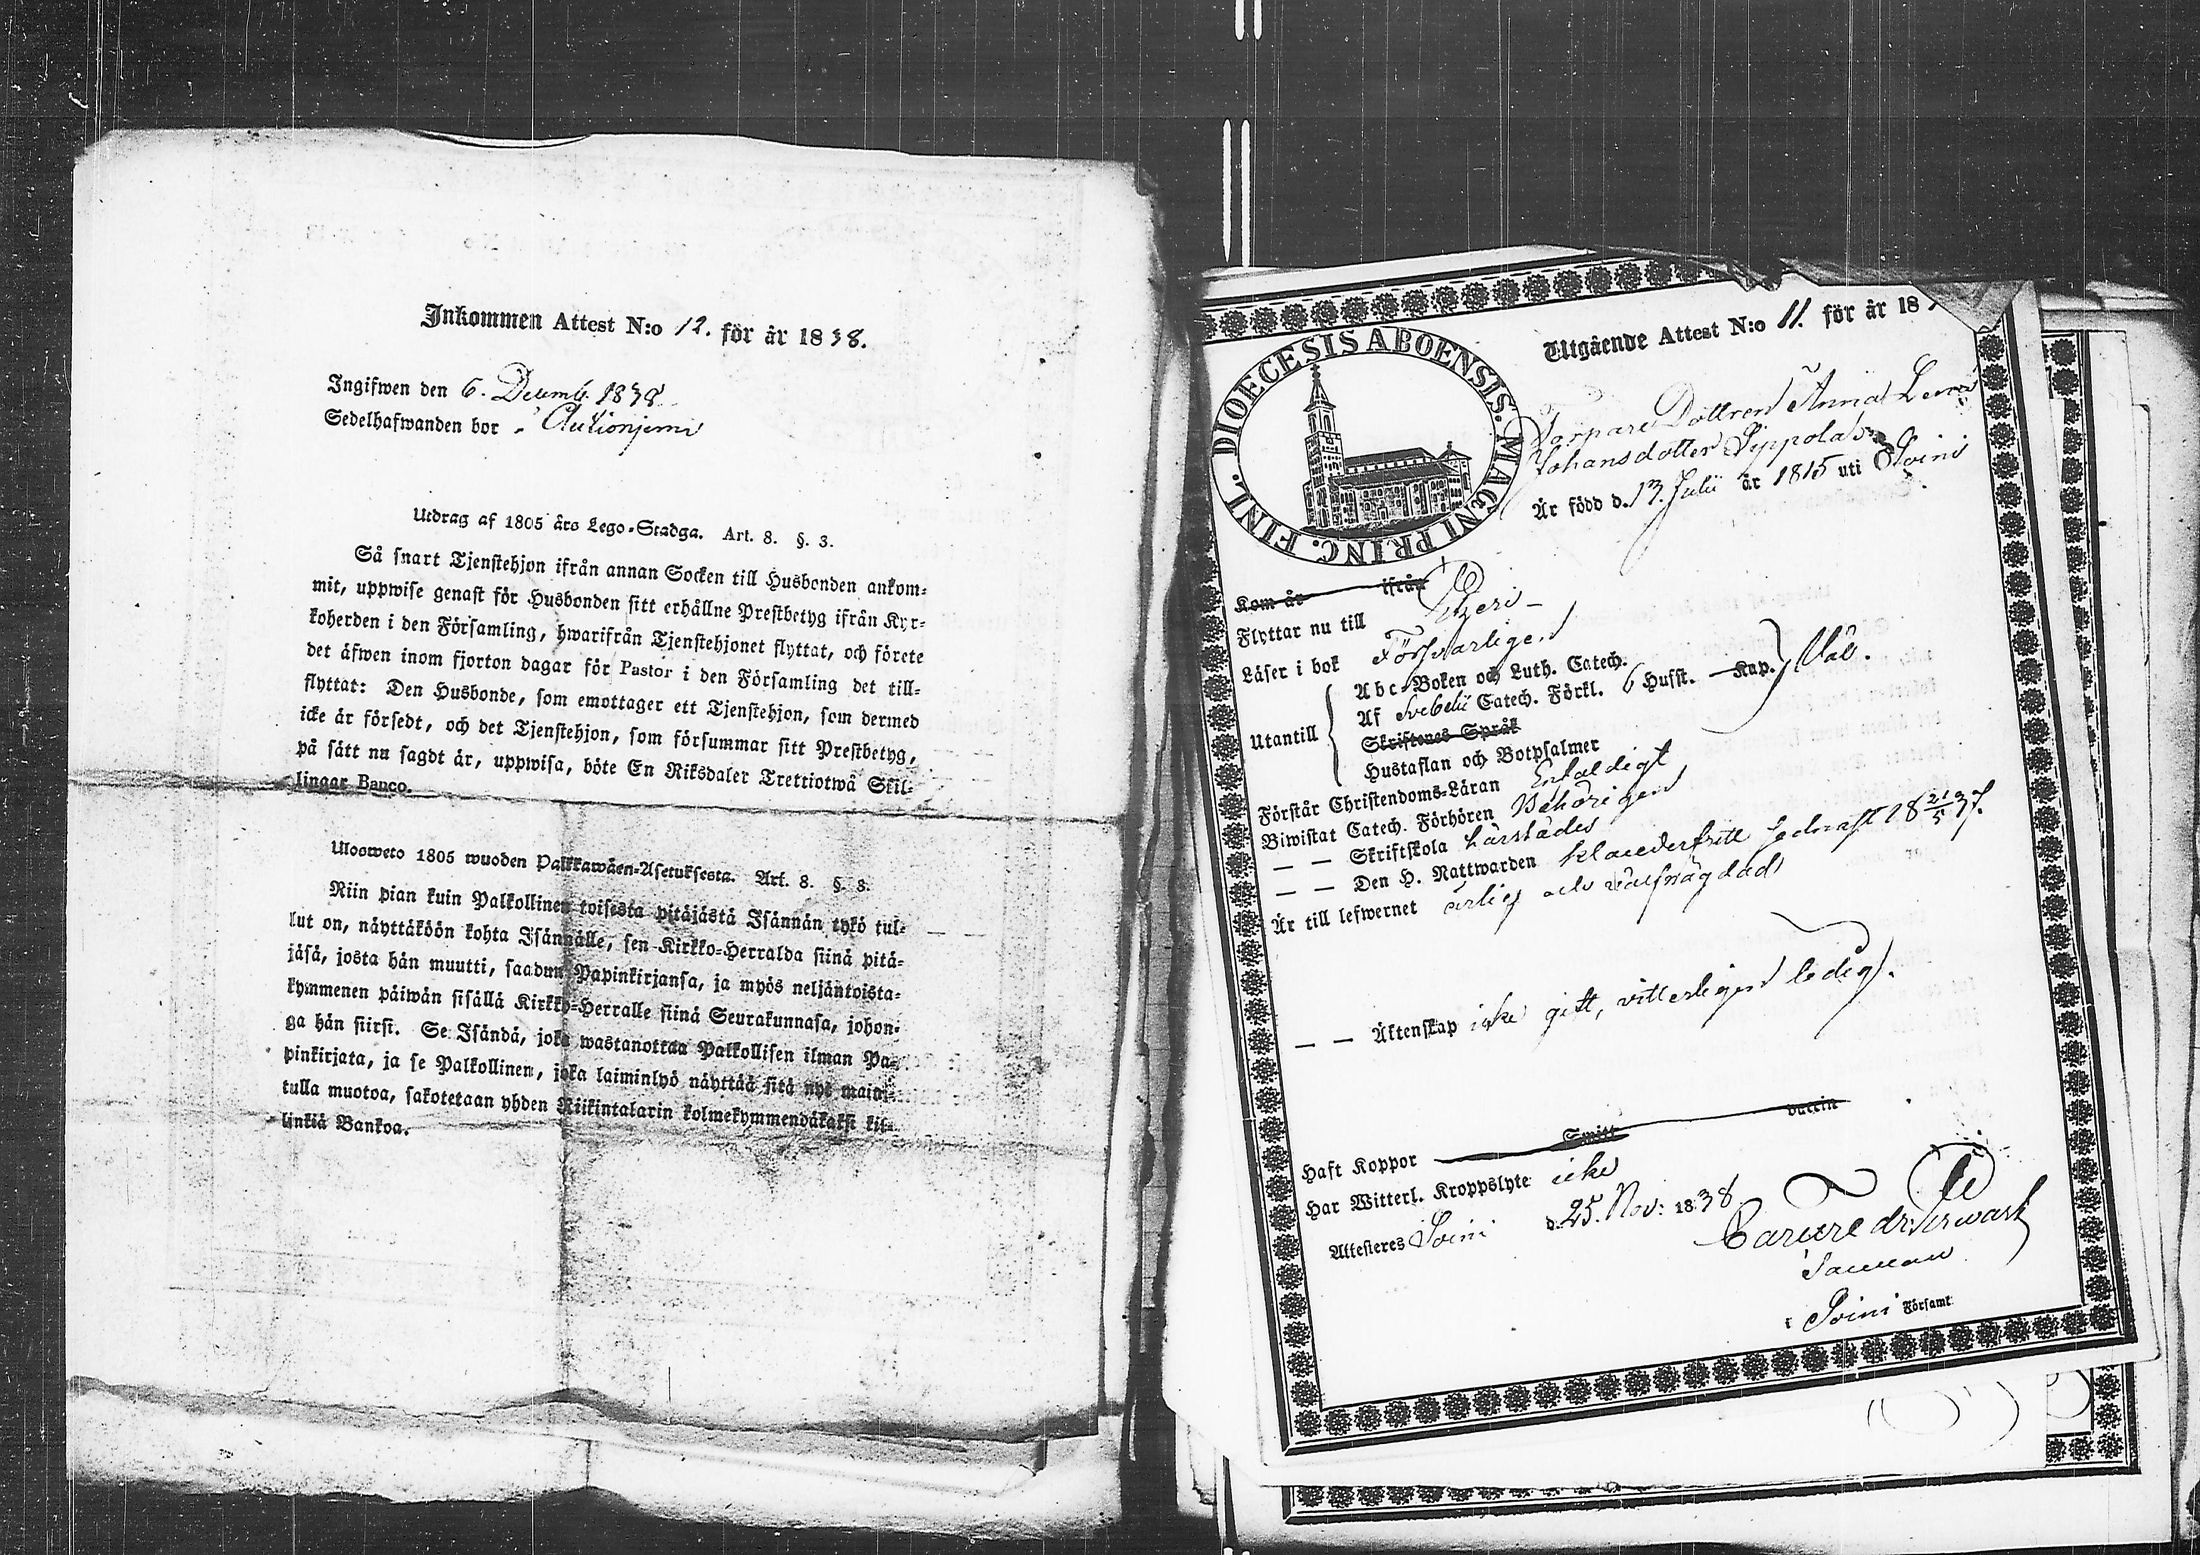 Inkommen Attest N:o 12. för år 1838.
Ingifwen den 6. Decemb. 1838
Sedelhafwanden bor
Utdrag af 1805 års Lego-Stadga. Art. 8. §. 3.
Så snart Tjenstehjon ifrån annan Socken till Husbonden ankom-
mit, uppwise genast för Husbonden sitt erhållne Prestbetyg ifrån Kyr-
koherden i den Församling, hwarifrån Tjenstehjonet flyttat, och förete
det äfwen inom fjorton dagar för Pastor i den Församling det till-
flyttat: Den Husbonde, som emottager ett Tjenstehjon, som dermed
icke är försedt, och det Tjenstehjon, som försummar sitt Prestbetyg,
på sätt nu sagdt är, uppwisa, böte En Riksdaler Trettiotwå Skil-
lingar Banco.
Ulosweto 1805 wuoden Palkkawäen-Asetuksesta. Art. 8. §. 3.
Niin pian kuin Palkollinen toisesta pitäjästä Isännän tykö tul-
lut on, näyttäköön kohta Isännälle, sen Kirkko-Herralda siinä pitä-
jäsä, josta hän muutti, saadun Papinkirjansa, ja myös neljäntoista-
kymmenen päiwän sisällä Kirkko-Herralle siinä Seurakunnasa, johon-
ga hän siirsi. Se Isändä, joka wastanottaa Palkollisen ilman Pa-
pinkirjata, ja se Palkollinen, joka laiminlyö näyttää sitä nyt mainі-
tulla muotoa, sakotetaan yhden Riikintalarin kolmekymmendäkaksi kil-
linkiä Bankoa.
Utgående Attest N:o 11. för år 18
DIOECESIS ABOENSIS. MAGNI PRINC. FINL.
Torpare Dottren Anna Lena
Johansdotter Sippola
Är född d. 13. Julii år 1815 uti Soini
Kom år ifrån
Flyttar nu till Etseri
Läser i bok Försvarligen
Abc-Boken och Luth. Catech.
Af Svebelii Catech. Förkl. 6 Hufst. — Kap. Väl.
Utantill
Skriftenes Språk
Hustaflan och Botpsalmer
Förstår Christendoms-Läran Enfaldigt
Biwistat Catech. Förhören Behörigen
— — Skriftskola härstädes
— — Den H. Nattwarden klanderfritt sednast 18 21/5 37.
Är till lefwernet ärlig och välfrägdad
— — Äktenskap icke gift, vitterligen ledig.
Haft Koppor Smitt- vaccin
Har Witterl. Kroppslyte icke
Attesteres Soini d. 25. Nov: 1838
i Soini Församl.